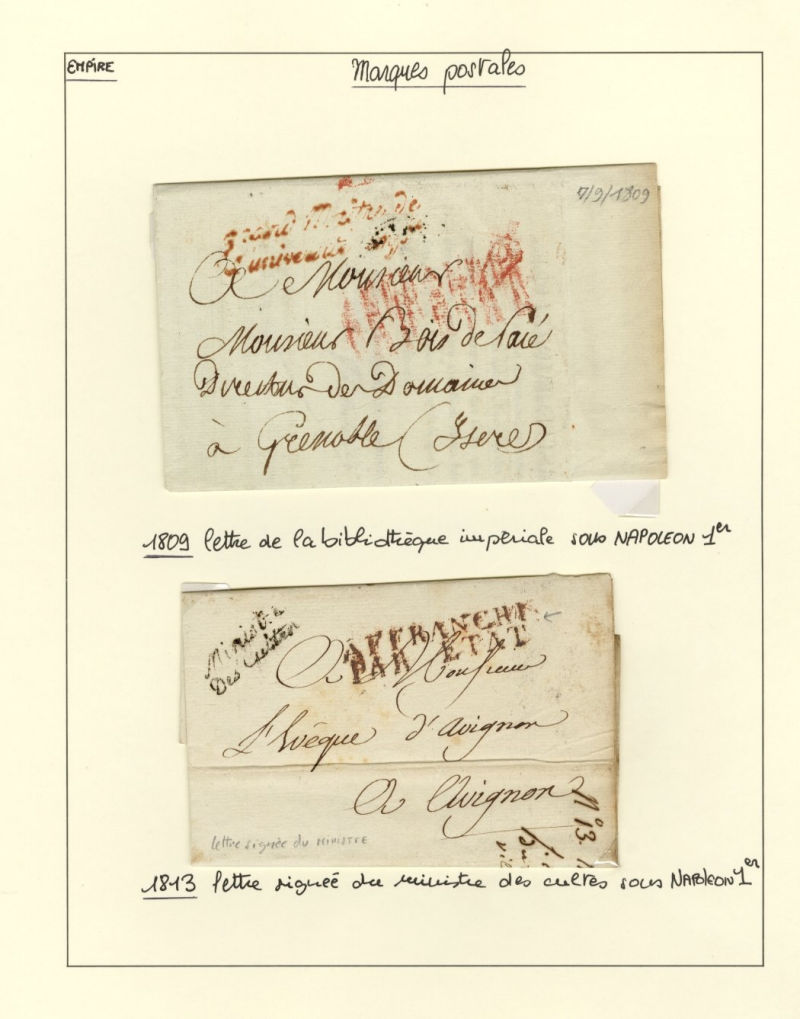 EMPIRE
Marques postales
7/9/1809
Grand Maître de
A Monsieur
Monsieur Bois de
Directeur des Domaines
à Grenoble (Isere)
1809 lettre de la bibliothèque impériale sous NAPOLEON 1er
Ministre
Des Cultes
AFFRANCHI
PAR ETAT
A Monsieur
L'Evêque d'Avignon
A Avignon
N° 13.
lettre signée du MINISTRE
1813 lettre signée du ministre des cultes sous NAPOLEON 1er